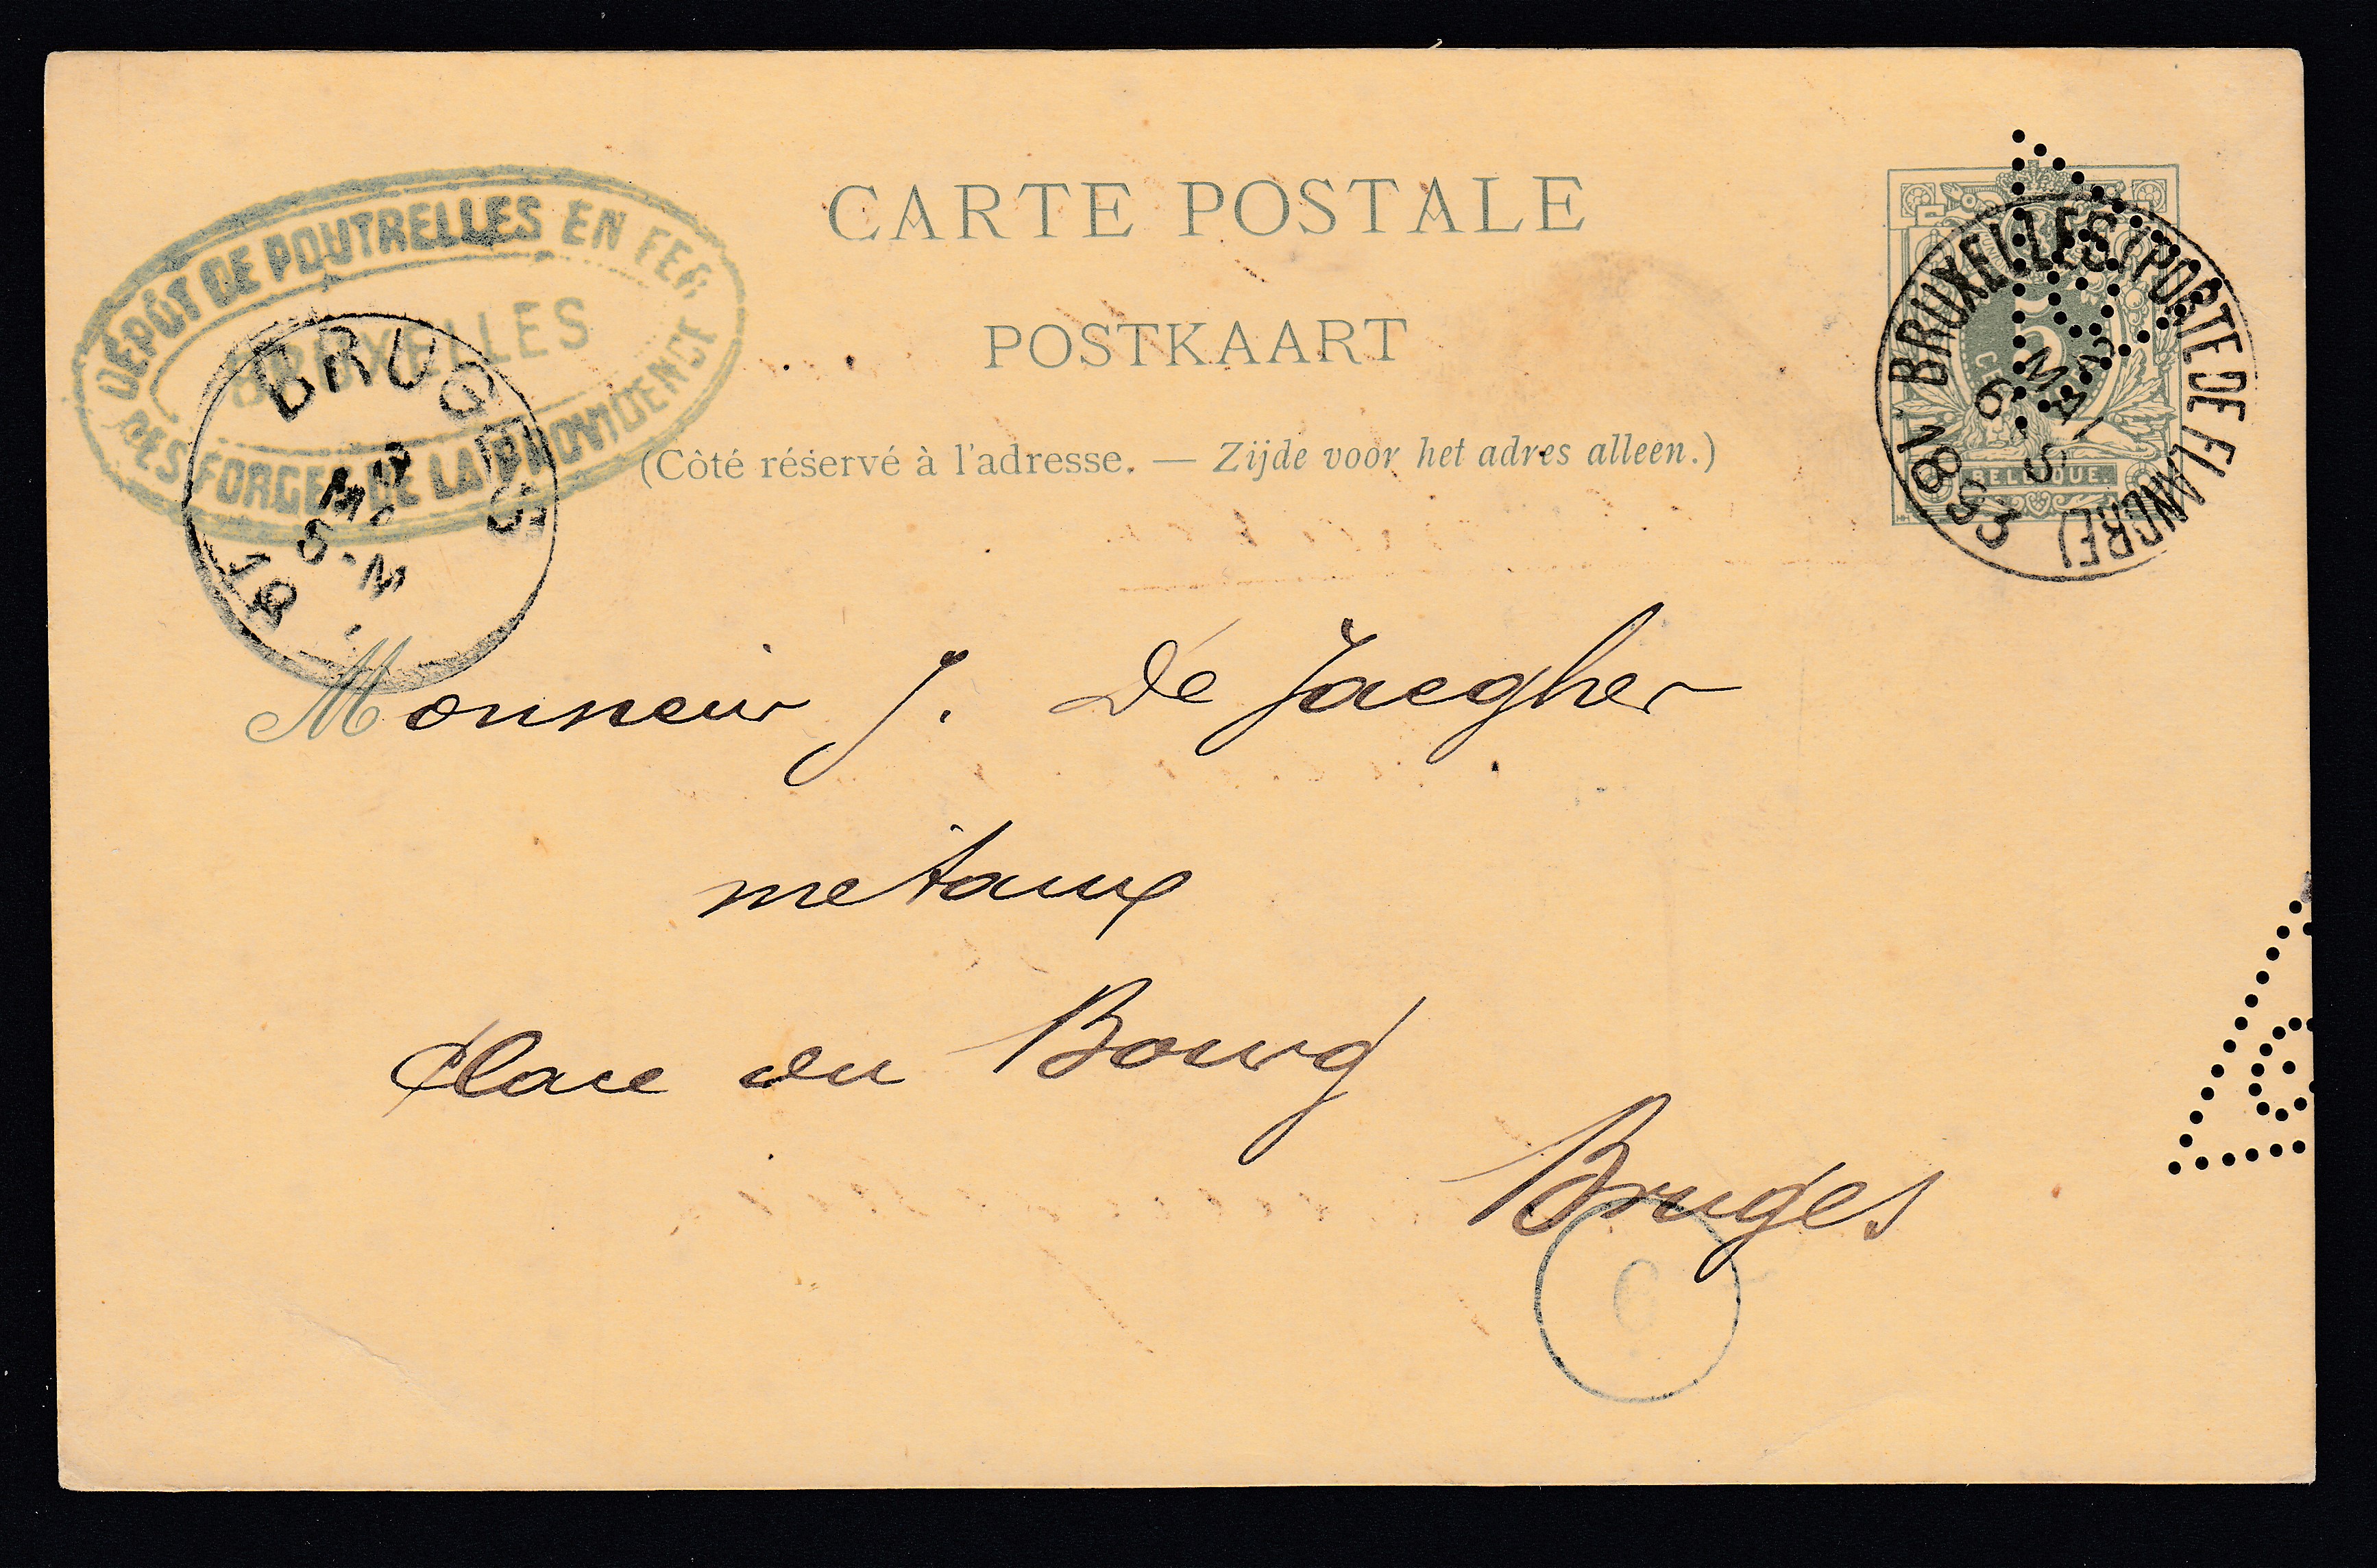 CARTE POSTALE
POSTKAART
(Côté réservé à l'adresse. — Zijde voor het adres alleen.)
DÉPÔT DE POUTRELLES EN FER
BRUXELLES
DES FORGES DE LA PROVIDENCE
BRUGES
BRUXELLES (PORTE DE FLANDRE)
5
BELGIQUE
Monsieur J. De Jaegher
metaux
Place du Bourg
Bruges
6